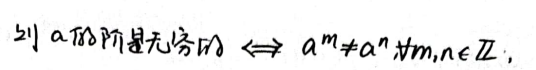 则 a 的阶是无穷的 ⟺ a^m ≠ a^n, ∀m,n∈ℤ.